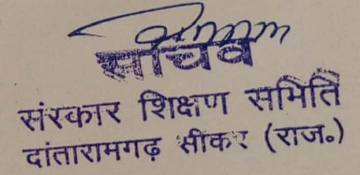 सचिव
संस्कार शिक्षण समिति
दांतारामगढ़ सीकर (राज॰)